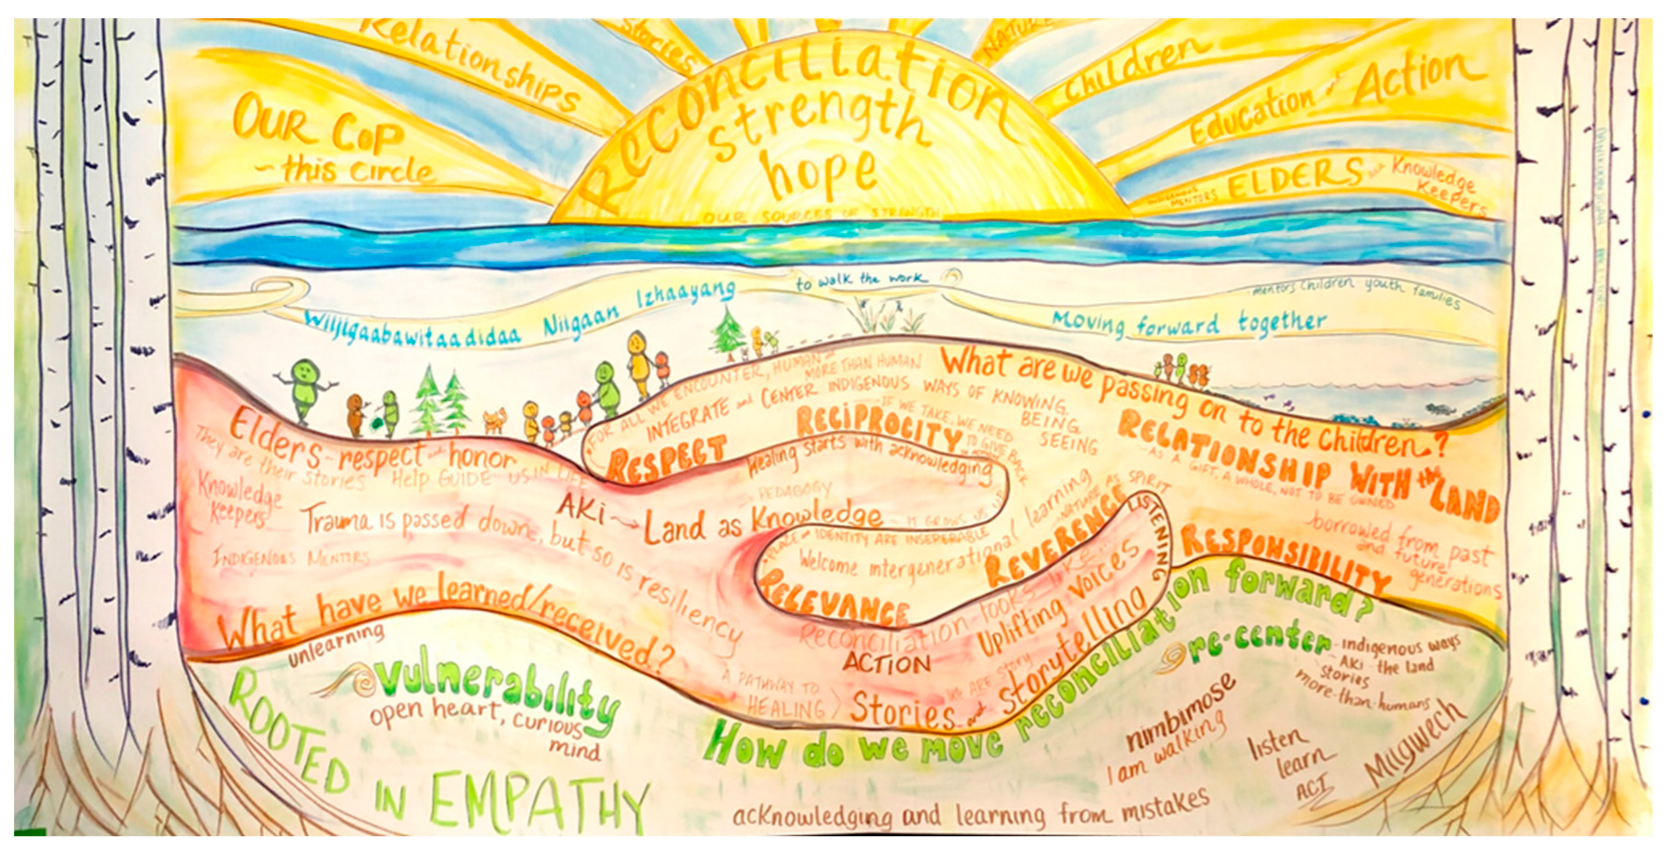 Relationships
Stories
NATURE
Children
Education and Action
OUR CoP
~this circle
Reconciliation
strength
hope
OUR SOURCES OF STRENGTH
INDIGENOUS MENTORS
ELDERS and Knowledge Keepers
Wiijigaabawitaadidaa Niigaan Izhaayang
to walk the work
Moving forward together
mentors children youth families
Elders-respect and honor
They are their stories
Help GUIDE US IN LIFE
Knowledge Keepers
INDIGENOUS MENTORS
Trauma is passed down, but so is resiliency
What have we learned/received?
FOR ALL WE ENCOUNTER, HUMAN and MORE THAN HUMAN
INTEGRATE and CENTER INDIGENOUS WAYS OF KNOWING,
BEING,
SEEING
RESPECT
RECIPROCITY
IF WE TAKE, WE NEED
TO GIVE BACK
Healing starts with acknowledging
AKi → Land as Knowledge
PEDAGOGY
IT GROWS US
PLACE and IDENTITY ARE INSEPERABLE
Welcome intergenerational learning
RELEVANCE
REVERENCE
NATURE AS SPIRIT
LISTENING
What are we passing on to the children?
RELATIONSHIP WITH the LAND
AS A GIFT, A WHOLE, NOT TO BE OWNED
borrowed from past
and future
generations
RESPONSIBILITY
Reconciliation-looks like
ACTION
Uplifting voices
A PATHWAY TO
HEALING
WE ARE STORY
Stories and storytelling
How do we move reconciliation forward?
unlearning
vulnerability
open heart, curious
mind
ROOTED IN EMPATHY
re-center-indigenous ways
AKi - the land
stories
more-than-humans
nimbimose
I am walking
listen
learn
ACT
Miigwech
acknowledging and learning from mistakes